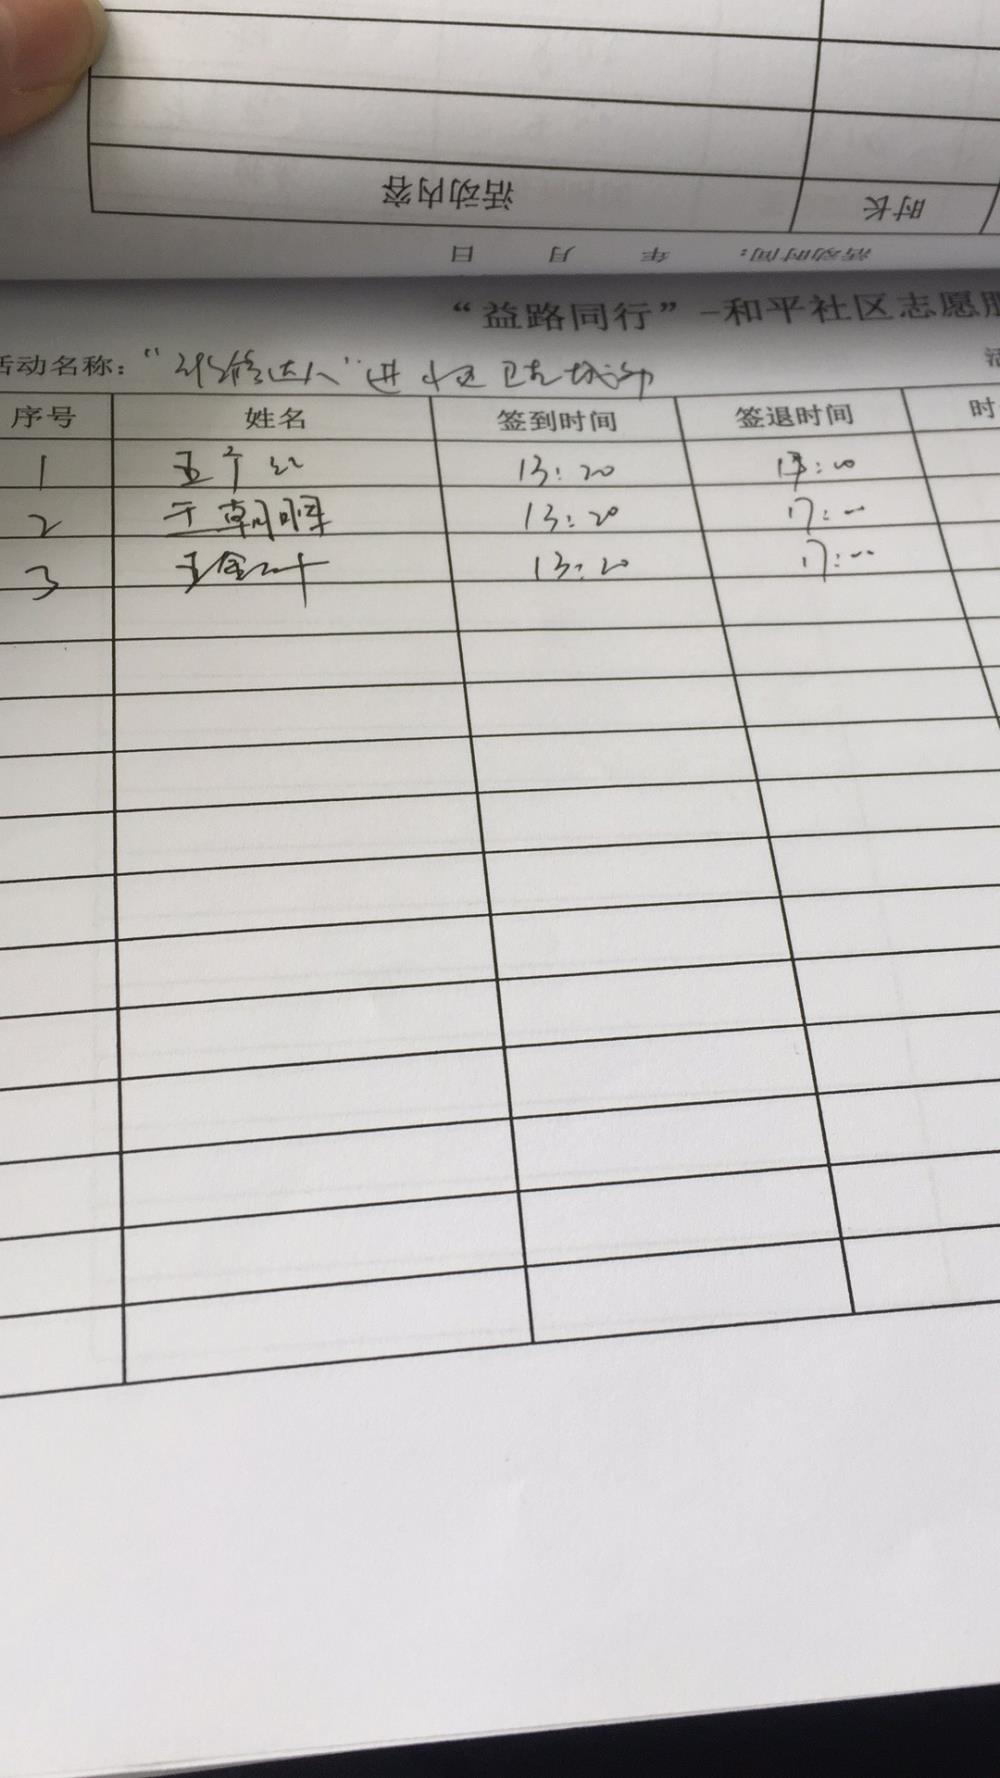 活动内容 时长
活动时间： 年 月 日
“益路同行”-和平社区志愿服
活动名称：“ 达人”进小区
序号 姓名 签到时间 签退时间 时
1 13:20 17:00
2 王朝晖 13:20 17:00
3 王金叶 13:20 17:00